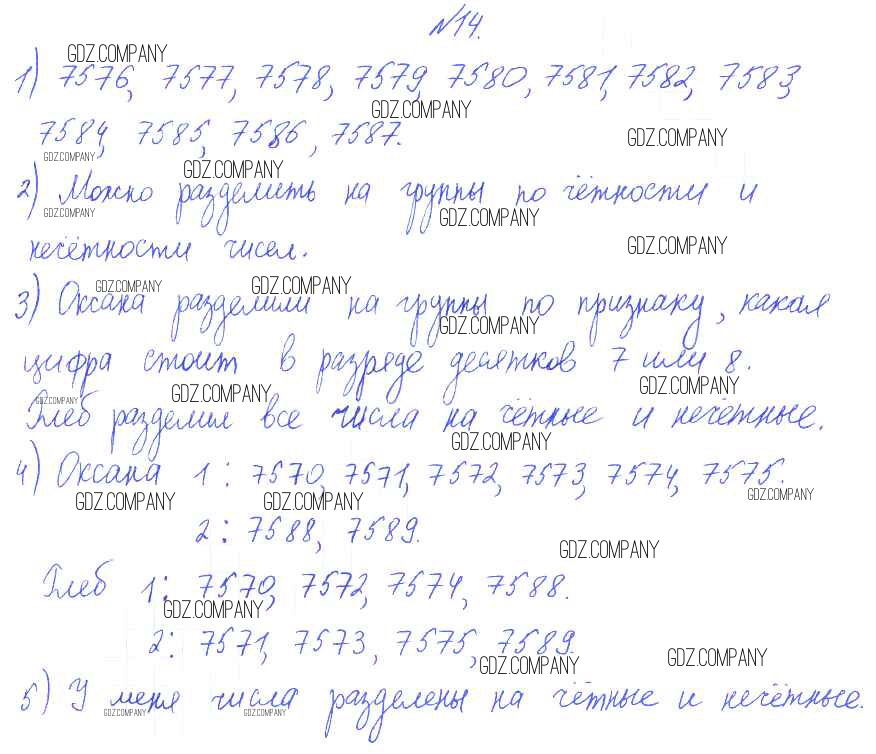 №14.
GDZ.COMPANY
1) 7576, 7577, 7578, 7579, 7580, 7581, 7582, 7583,
GDZ.COMPANY
7584, 7585, 7586, 7587.
GDZ.COMPANY
GDZ.COMPANY
GDZ.COMPANY
2) Можно разделить на группы по чётности и
GDZ.COMPANY
GDZ.COMPANY
нечётности чисел.
GDZ.COMPANY
GDZ.COMPANY
GDZ.COMPANY
3) Оксана разделили на группы по признаку, какая
GDZ.COMPANY
цифра стоит в разряде десятков 7 или 8.
GDZ.COMPANY
GDZ.COMPANY
GDZ.COMPANY
Глеб разделил все числа на чётные и нечётные.
GDZ.COMPANY
4) Оксана 1: 7570, 7571, 7572, 7573, 7574, 7575.
GDZ.COMPANY
GDZ.COMPANY
GDZ.COMPANY
2: 7588, 7589.
GDZ.COMPANY
Глеб 1: 7570, 7572, 7574, 7588.
GDZ.COMPANY
2: 7571, 7573, 7575, 7589.
GDZ.COMPANY
GDZ.COMPANY
5) У меня числа разделены на чётные и нечётные.
GDZ.COMPANY
GDZ.COMPANY